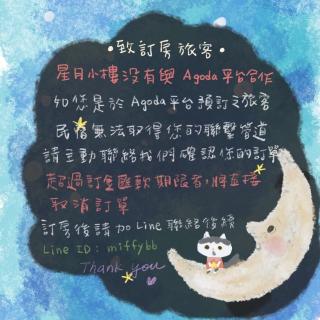 •致訂房旅客•
星月小樓没有與 Agoda 平台合作
如您是於 Agoda 平台預訂之旅客
民宿無法取得您的聯繫管道
請主動聯絡我們確認您的訂單
超過訂金匯款期限者,將直接
取消訂單
訂房後請加 Line 聯絡後續
Line ID: miffybb
Thank you